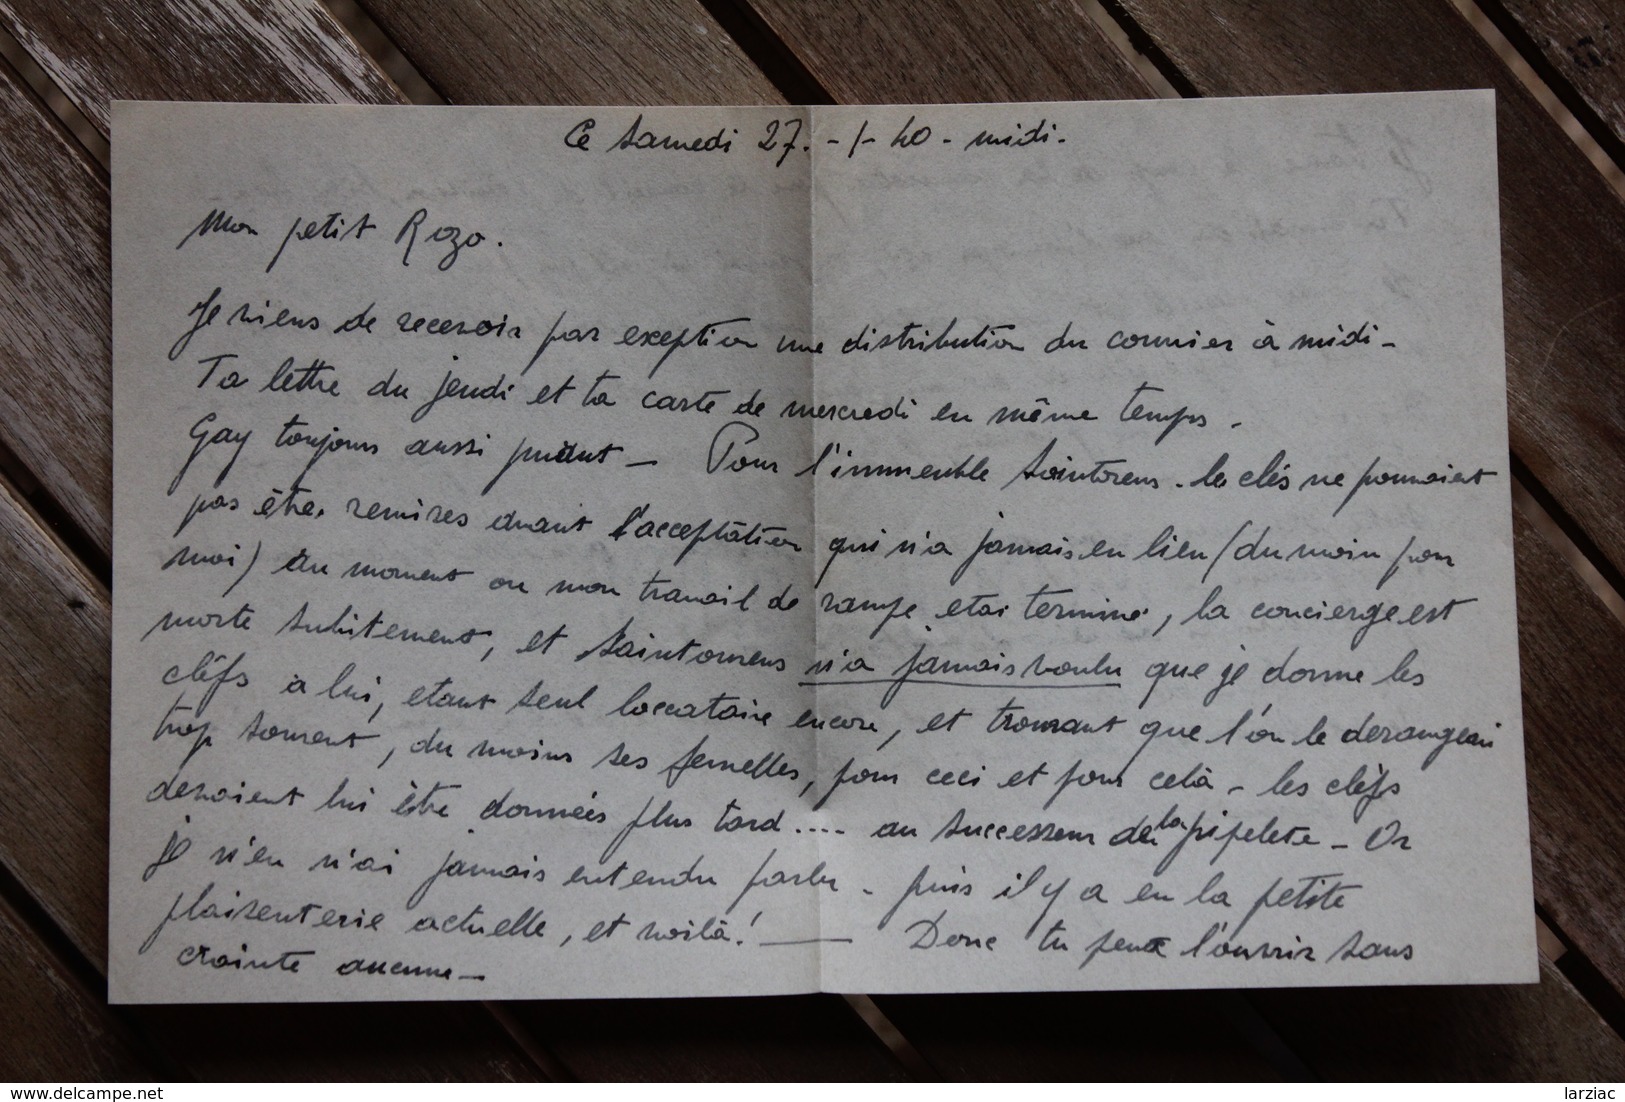 Ce samedi 27. - 1 - 40 - midi -
Mon petit Rozo.
Je viens de recevoir par exception une distribution du courrier à midi -
Ta lettre du jeudi et ta carte de mercredi en même temps.
Gay toujours aussi - Pour l'immeuble Saintorens. les clés ne pouvaient
pas être remises avant l'acceptation qui n'a jamais eu lieu (du moins pour
moi) Au moment ou mon travail de rampe etai terminé, la concierge est
morte subitement, et Saintourens n'a jamais voulu que je donne les
cléfs à lui, etant seul loccataire encore, et trouvant que l'on le derangeai
trop souvent, du moins ses femelles, pour ceci et pour celà - les cléfs
devaient lui être données plus tard .... au successeur de la pipelete - Or
je n'en n'ai jamais entendu parler - puis il y a eu la petite
plaisenterie actuelle, et voilà! — Donc tu peux l'ouvrir sans
crainte aucune -
delcampe.net
larziac